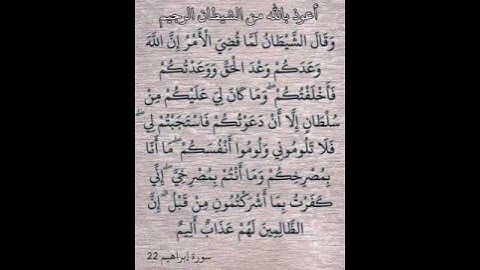 أعوذ بالله من الشيطان الرجيم
وَقَالَ الشَّيْطَانُ لَمَّا قُضِيَ الْأَمْرُ إِنَّ اللَّهَ
وَعَدَكُمْ وَعْدَ الْحَقِّ وَوَعَدْتُكُمْ
فَأَخْلَفْتُكُمْ ۖ وَمَا كَانَ لِيَ عَلَيْكُمْ مِنْ
سُلْطَانٍ إِلَّا أَنْ دَعَوْتُكُمْ فَاسْتَجَبْتُمْ لِي ۖ
فَلَا تَلُومُونِي وَلُومُوا أَنْفُسَكُمْ ۖ مَا أَنَا
بِمُصْرِخِكُمْ وَمَا أَنْتُمْ بِمُصْرِخِيَّ ۖ إِنِّي
كَفَرْتُ بِمَا أَشْرَكْتُمُونِ مِنْ قَبْلُ ۗ إِنَّ
الظَّالِمِينَ لَهُمْ عَذَابٌ أَلِيمٌ
سورة إبراهيم 22